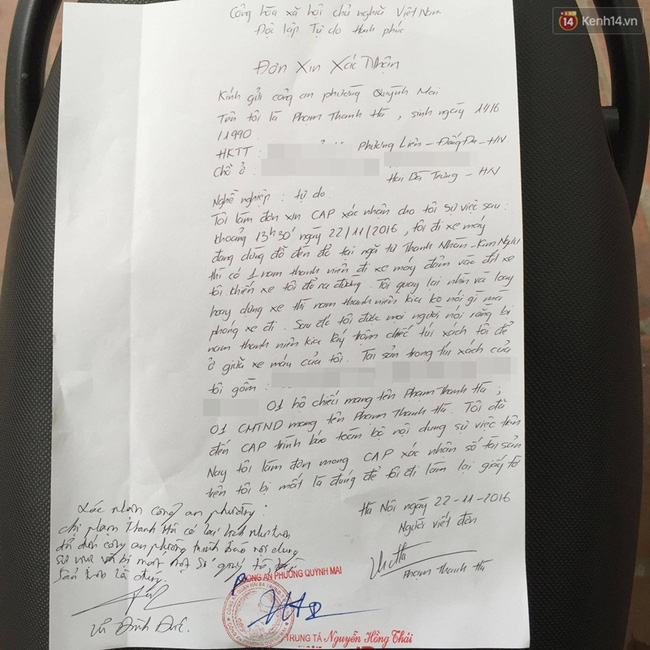 14 Kenh14.vn
Cộng hòa xã hội chủ nghĩa Việt Nam
Độc lập Tự do Hạnh phúc
Đơn Xin Xác Nhận
Kính gửi công an phường Quỳnh Mai
Tên tôi là Phạm Thanh Hà, sinh ngày 14/6
/1990
HKTT : Phương Liên - Đống Đa - HN
Chỗ ở : Hai Bà Trưng - HN
Nghề nghiệp : tự do
Tôi làm đơn xin CAP xác nhận cho tôi sự việc sau:
Khoảng 13h30' ngày 22/11/2016, tôi đi xe máy
đang dừng đỗ đèn đỏ tại ngã tư Thanh Nhàn - Kim Ngưu
thì có 1 nam thanh niên đi xe máy đâm vào đít xe
tôi khiến xe tôi đổ ra đường. Tôi quay lại nhìn và loay
hoay dựng xe thì nam thanh niên kia ko nói gì mà
phóng xe đi. Sau đó tôi được mọi người nói rằng bị
nam thanh niên kia lấy trộm chiếc túi xách tôi để
ở giữa xe máy của tôi. Tài sản trong túi xách của
tôi gồm :
01 hộ chiếu mang tên Phạm Thanh Hà,
01 CMTND mang tên Phạm Thanh Hà. Tôi đã
đến CAP trình báo toàn bộ nội dung sự việc trên
Nay tôi làm đơn mong CAP xác nhận số tài sản
trên tôi bị mất là đúng để tôi đi làm lại giấy tờ
Hà Nội ngày 22-11-2016
Người viết đơn
Phạm Thanh Hà
Xác nhận công an phường:
Chị Phạm Thanh Hà có lai lịch như trên
đã đến công an phường trình báo nội dung
sự việc và bị mất một số giấy tờ,
Sản trên là đúng.
Vũ Đình Đức
CÔNG AN PHƯỜNG QUỲNH MAI
TRUNG TÁ Nguyễn Hồng Thái